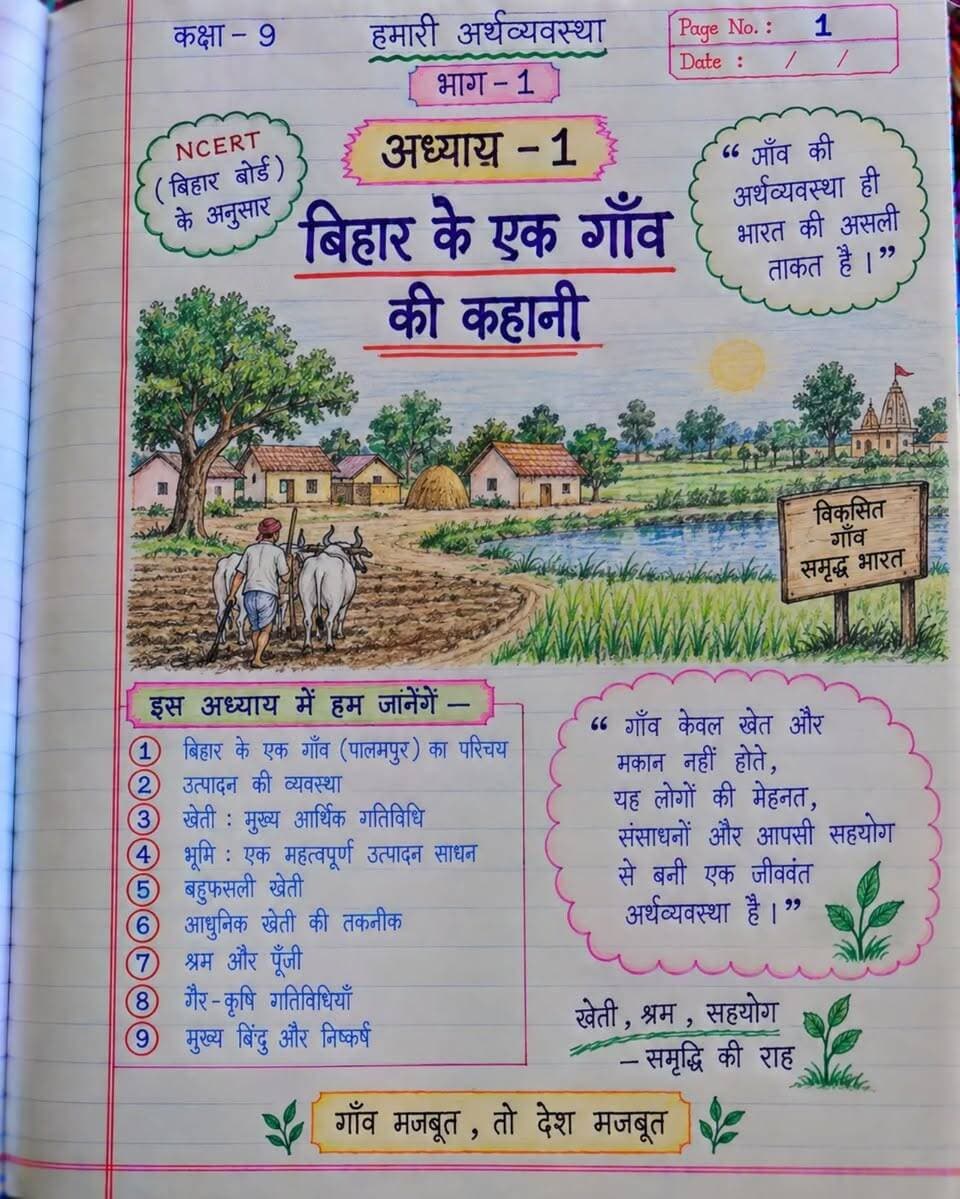 कक्षा - 9
हमारी अर्थव्यवस्था
Page No. : 1
Date : / /
भाग - 1
अध्याय - 1
NCERT
(बिहार बोर्ड)
के अनुसार
बिहार के एक गाँव
की कहानी
“ गाँव की
अर्थव्यवस्था ही
भारत की असली
ताकत है । ”
विकसित
गाँव
समृद्ध भारत
इस अध्याय में हम जानेंगें —
1 बिहार के एक गाँव (पालमपुर) का परिचय
2 उत्पादन की व्यवस्था
3 खेती : मुख्य आर्थिक गतिविधि
4 भूमि : एक महत्वपूर्ण उत्पादन साधन
5 बहुफसली खेती
6 आधुनिक खेती की तकनीक
7 श्रम और पूँजी
8 गैर - कृषि गतिविधियाँ
9 मुख्य बिंदु और निष्कर्ष
“ गाँव केवल खेत और
मकान नहीं होते,
यह लोगों की मेहनत,
संसाधनों और आपसी सहयोग
से बनी एक जीववंत
अर्थव्यवस्था है । ”
खेती , श्रम , सहयोग
— समृद्धि की राह
गाँव मजबूत , तो देश मजबूत